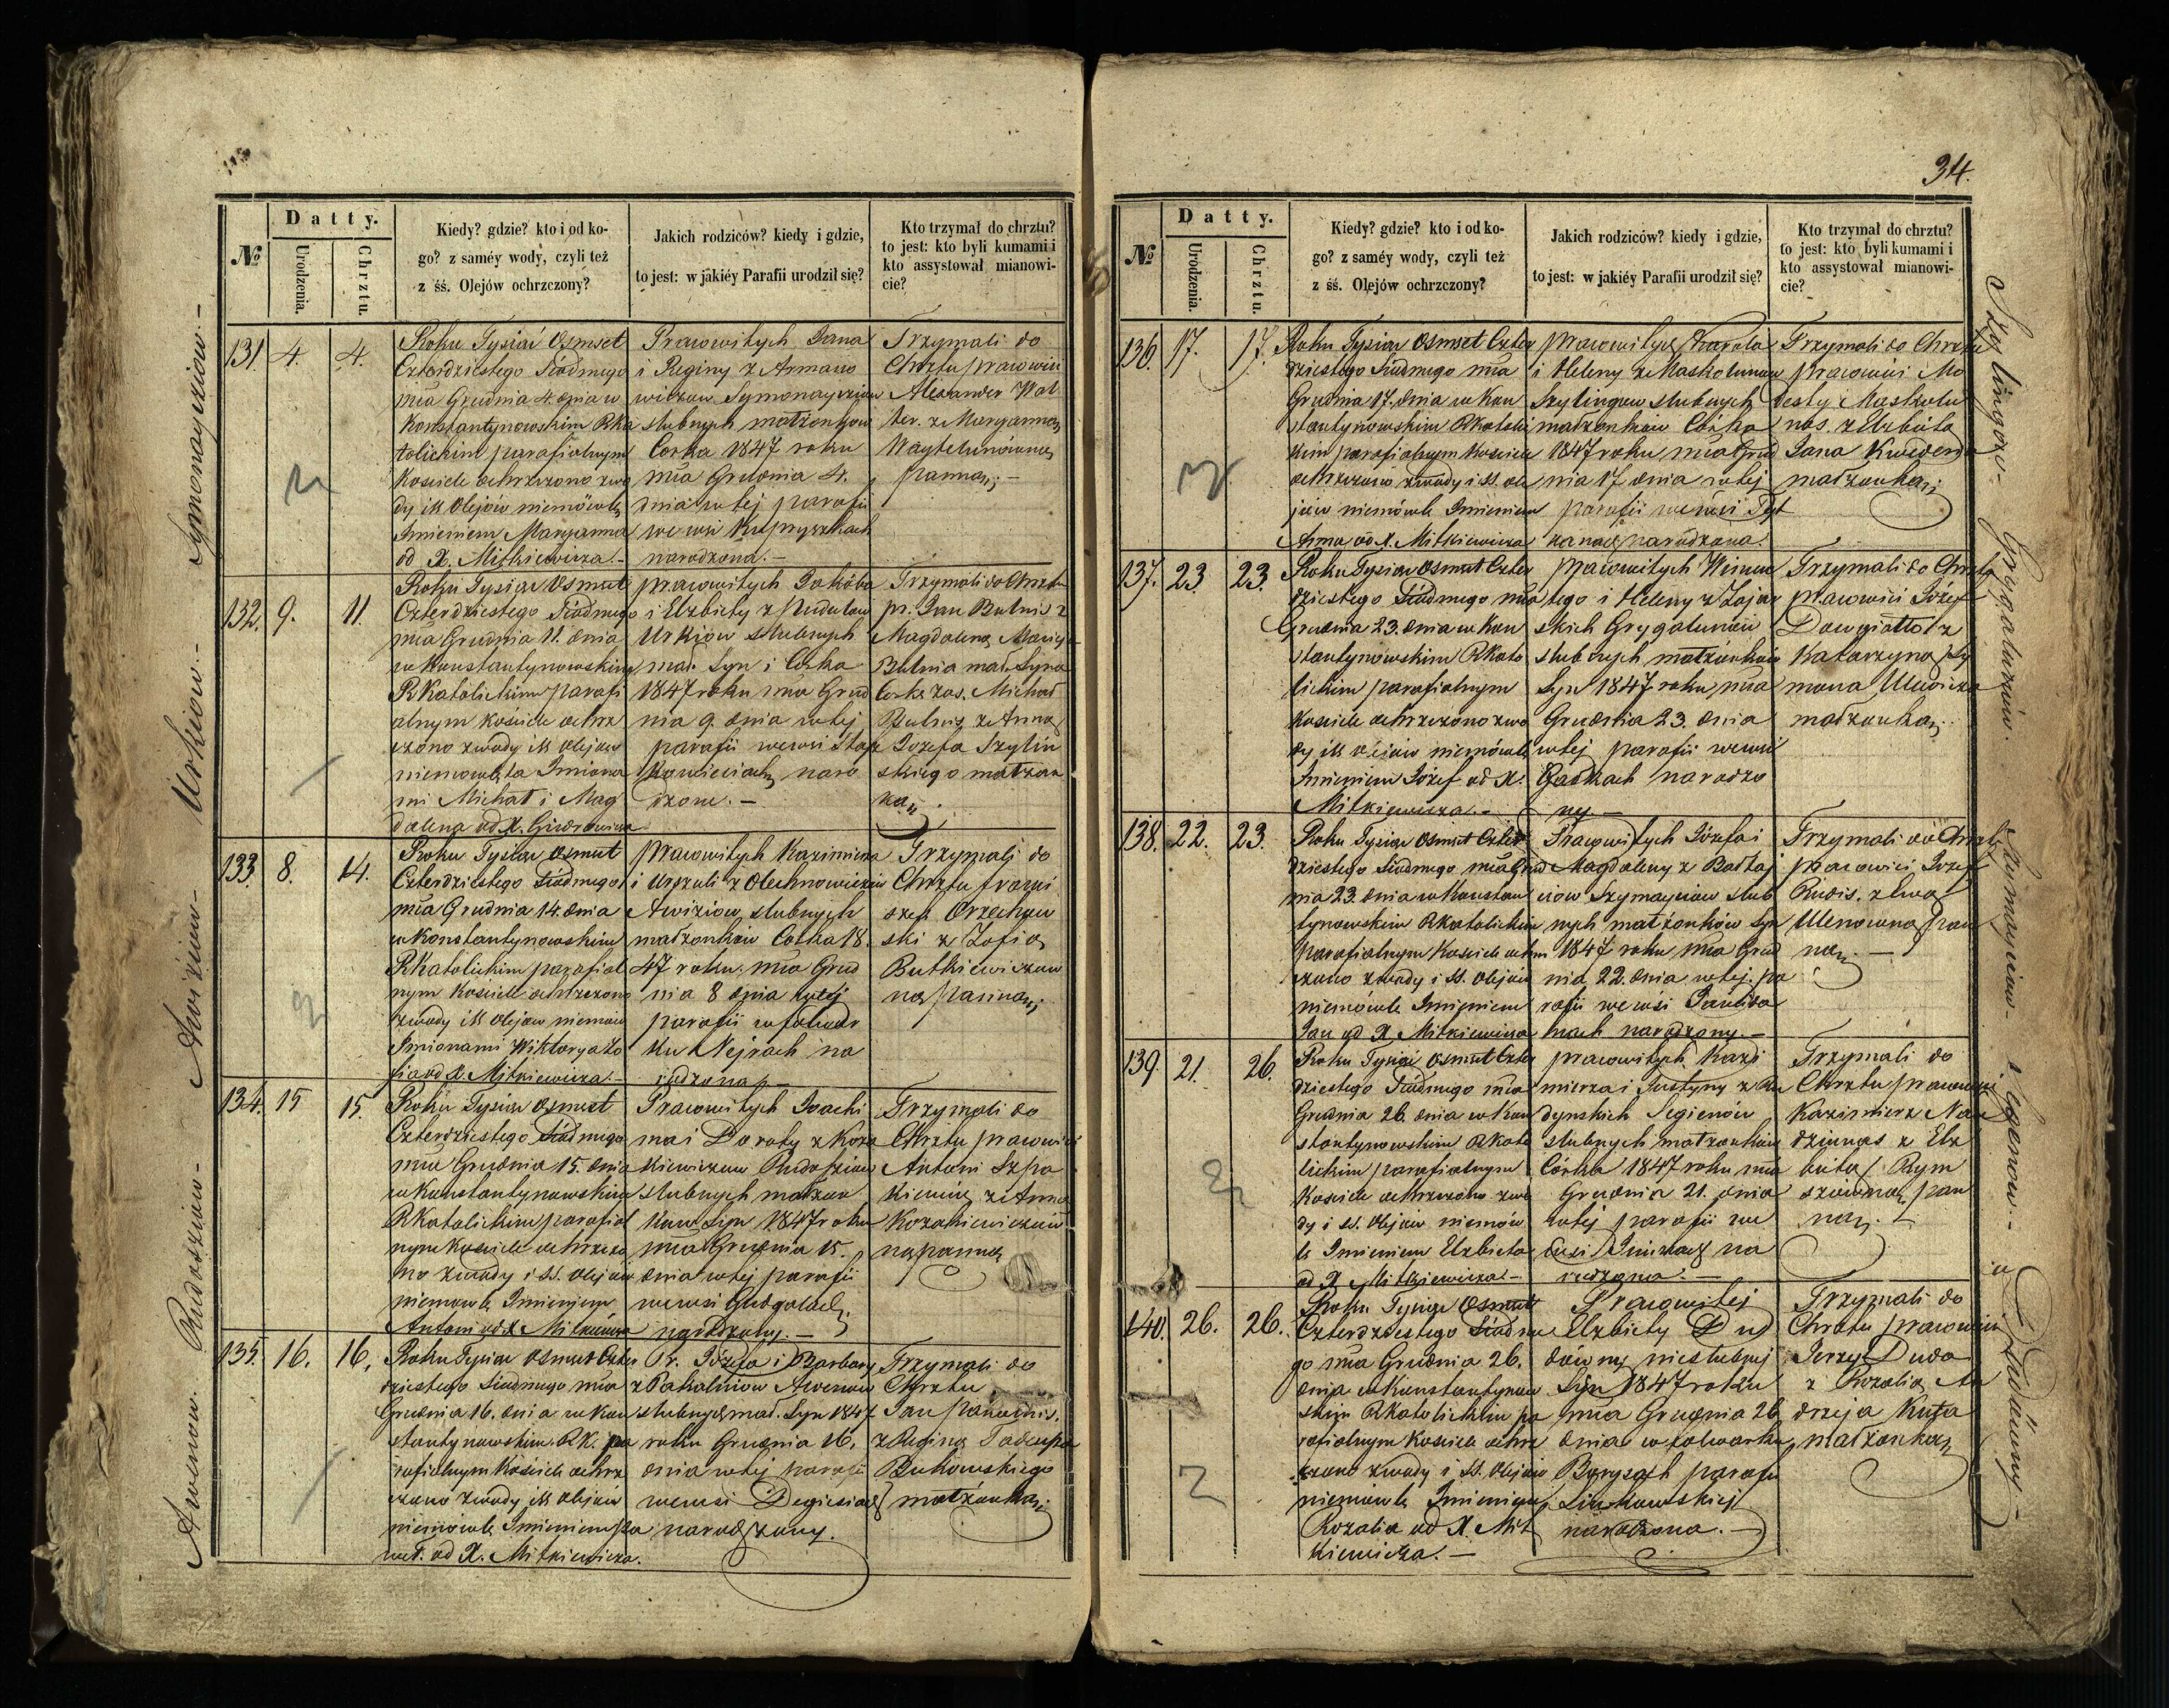 34.
№
Datty.
Urodzenia.
Chrztu.
Kiedy? gdzie? kto i od ko-
go? z saméy wody, czyli też
z śś. Olejów ochrzczony?
Jakich rodziców? kiedy i gdzie,
to jest: w jakiéy Parafii urodził się?
Kto trzymał do chrztu?
to jest: kto byli kumami i
kto assystował mianowi-
cie?
Symonayciow.-
131. 4. 4.
Roku Tysiąć Osmset
Czterdziestego Siódmego
mca Grudnia 4. dnia w
Konstantynowskim RKa
tolickim parafialnym
Kościele ochrzczono zwo
dy i SS Olejów niemówle
Imieniem Maryanna
od X. Mitkiewicza.-
Prawowitych Jana
i Reginy z Armano
wiczow Symonayciow
slubnych małżonkow
Corka 1847 roku
mca Grudnia 4.
dnia w tej parafii
we wsi Kupryszkach
narodzona.-
Trzymali do
Chrztu prawowici
Alexander Wol
ter. z Maryanną
Panną;-
Urkiow.-
132. 9. 11.
Roku Tysiąc Osmset
Czterdziestego Siódmego
mca Grudnia 11. dnia
w Konstantynowskim
RKatolickim parafi
alnym kościele ochrz
czono zwody i SS olejow
niemowlęta Imiona
mi Michał i Mag
dalena od X.
prawowitych Jakóba
i Elzbiety z Pudulow
Urkiów Slubnych
mał. Syn i Corka
1847 roku mca Grud
nia 9 dnia w tej
parafii we wsi Staż
kowieciach naro
dzone.-
Trzymali do Chrztu
pr. Jan Butnis z
Magdaleną
Butnia mał. Syna
Corkę zaś. Michał
Butnis z Anną
Jozefa Szylin
skiego małżon
ką.
Awiziow-
133. 8. 14.
Roku Tysiąc Osmset
Czterdziestego Siódmego
mca Grudnia 14. dnia
w Konstantynowskim
RKatolickim parafial
nym Kościele ochrzczono
zwody i SS Olejow niemów
Imionami Wiktorya Zo
fia od X. Mitkiewicza.-
prawowitych Kazimierza
i Urszuli z Olechnowiczow
Awiziow slubnych
małżonków Corka 18
47 roku mca Grud
nia 8 dnia w tej
parafii w folwar
ku Nejrach na
rodzona.-
Trzymali do
Chrztu Franci
szek Orzechow
ski z Zofią
Butkiewiczow
ną panną;
Rudosziow-
134. 15 15.
Roku Tysiąc Osmset
Czterdziestego Siódmego
mca Grudnia 15. dnia
w Konstantynowskim
RKatolickim parafial
nym Kościele ochrzczo
no zwody i SS. Olejów
niemowle Imieniem
Antoni od X Mitkiewicza
Prawowitych Joachi
ma i Doroty z Koza
kiewiczow Rudosziow
slubnych małżon
kow Syn 1847 roku
mca Grudnia 15.
dnia w tej parafii
we wsi Gudgalach
narodzony.-
Trzymali do
Chrztu prawowici
Antoni Szpa
kiewicz z Anną
Kozakiewiczów
ną panną
Awenow.
135. 16. 16.
Roku Tysiąc Osmset Czter
dziestego Siódmego mca
Grudnia 16. dnia w Kon
stantynowskim RK. pa
rafialnym Kościele ochrz
czono zwody i SS olejów
niemówle Imieniem Pa
weł. od X. Mitkiewicza.
Pr. Józefa i Barbary
z Pakalniow Awenow
slubnych mał. Syn 1847
roku Grudnia 16.
dnia w tej parafii
we wsi Degiesiach
narodzony.
Trzymali do
Chrztu
Jan
z Reginą Tadeusza
Bukowskiego
małżonką;
№
Datty.
Urodzenia.
Chrztu.
Kiedy? gdzie? kto i od ko-
go? z saméy wody, czyli też
z śś. Olejów ochrzczony?
Jakich rodziców? kiedy i gdzie,
to jest: w jakiéy Parafii urodził się?
Kto trzymał do chrztu?
to jest: kto byli kumami i
kto assystował mianowi-
cie?
Szylingow-
136. 17. 17.
Roku Tysiąc Osmset Czter
dziestego Siódmego mca
Grudnia 17. dnia w Kon
stantynowskim RKatolic
kim parafialnym Kościele
ochrzczono zwody i SS. ole
jów niemówle Imieniem
Anna od X. Mitkiewicza
prawowitych Karola
i Heleny z Maskolunow
Szylingow slubnych
małżonkow Córka
1847 roku mca Grud
nia 17 dnia w tej
parafii we wsi
narodzona.
Trzymali do Chrztu
prawowici Mo
desty Maskolu
nas. z Elzbietą
Jana Kwederá
małżonką;
Grygalunów.
137. 23 23.
Roku Tysiąc Osmset Czter
dziestego Siódmego mca
Grudnia 23. dnia w Kon
stantynowskim RKato
lickim parafialnym
Kościele ochrzczono zwo
dy i SS olejów niemówle
Imieniem Józef od X.
Mitkiewicza.-
prawowitych Wincen
tego i Heleny z Zająz
skich Grygalunow
slubnych małżonków
Syn 1847 roku mca
Grudnia 23. dnia
w tej parafii we wsi
Gaszkach narodzo
ny.-
Trzymali do Chrztu
prawowici Józef
Dowgiałło z
Katarzyną Szy
mona Ulewicza
małżonką;
Szymayciow-
138. 22. 23.
Roku Tysiąc Osmset Czter
dziestego Siódmego mca Grud
nia 23. dnia w Konstan
tynowskim RKatolickim
parafialnym Kościele ochrz
czono zwody i SS. olejów
niemówle Imieniem
Jan od X Mitkiewicza
Prawowitych Józefa i
Magdaleny z Baltaj
ciow Szymayciow slub
nych małżonków Syn
1847 roku mca Grud
nia 22. dnia w tej pa
rafii we wsi
narodzony.-
Trzymali do Chrztu
prawowici Józef
Rudis. z Ewą
Ulewowną pan
ną.-
Segienow.-
139. 21. 26.
Roku Tysiąc Osmset Czter
dziestego Siódmego mca
Grudnia 26. dnia w Kon
stantynowskim RKato
lickim parafialnym
Kościele ochrzczono zwo
dy i SS. Olejów niemów
le Imieniem Elzbieta
od X Mitkiewicza-
prawowitych Kazi
mierza i Justyny z Ru
dynskich Segienów
slubnych małżonków
Córka 1847 roku mca
Grudnia 21. dnia
w tej parafii we
wsi na
rodzona.-
Trzymali do
Chrztu prawowici
Kazimierz Na
dziunas z Elz
bietą Rym
szówną pan
ną.-
Dudówny-
140. 26. 26.
Roku Tysiąc Osmset
Czterdziestego Siódme
go mca Grudnia 26.
dnia w Konstantynow
skim RKatolickim pa
rafialnym Kościele ochrz
czono zwody i SS. Olejów
niemówle Imieniem
Rozalia od X. Mit
kiewicza.-
Prawowitej
Elzbiety Du
dównej nieslubnej
1847 roku
mca Grudnia 26
dnia w folwarku
parafii
narodzona.-
Trzymali do
Chrztu prawowici
Jerzy Duda
z Rozalią An
drzeja Kuza
małżonką